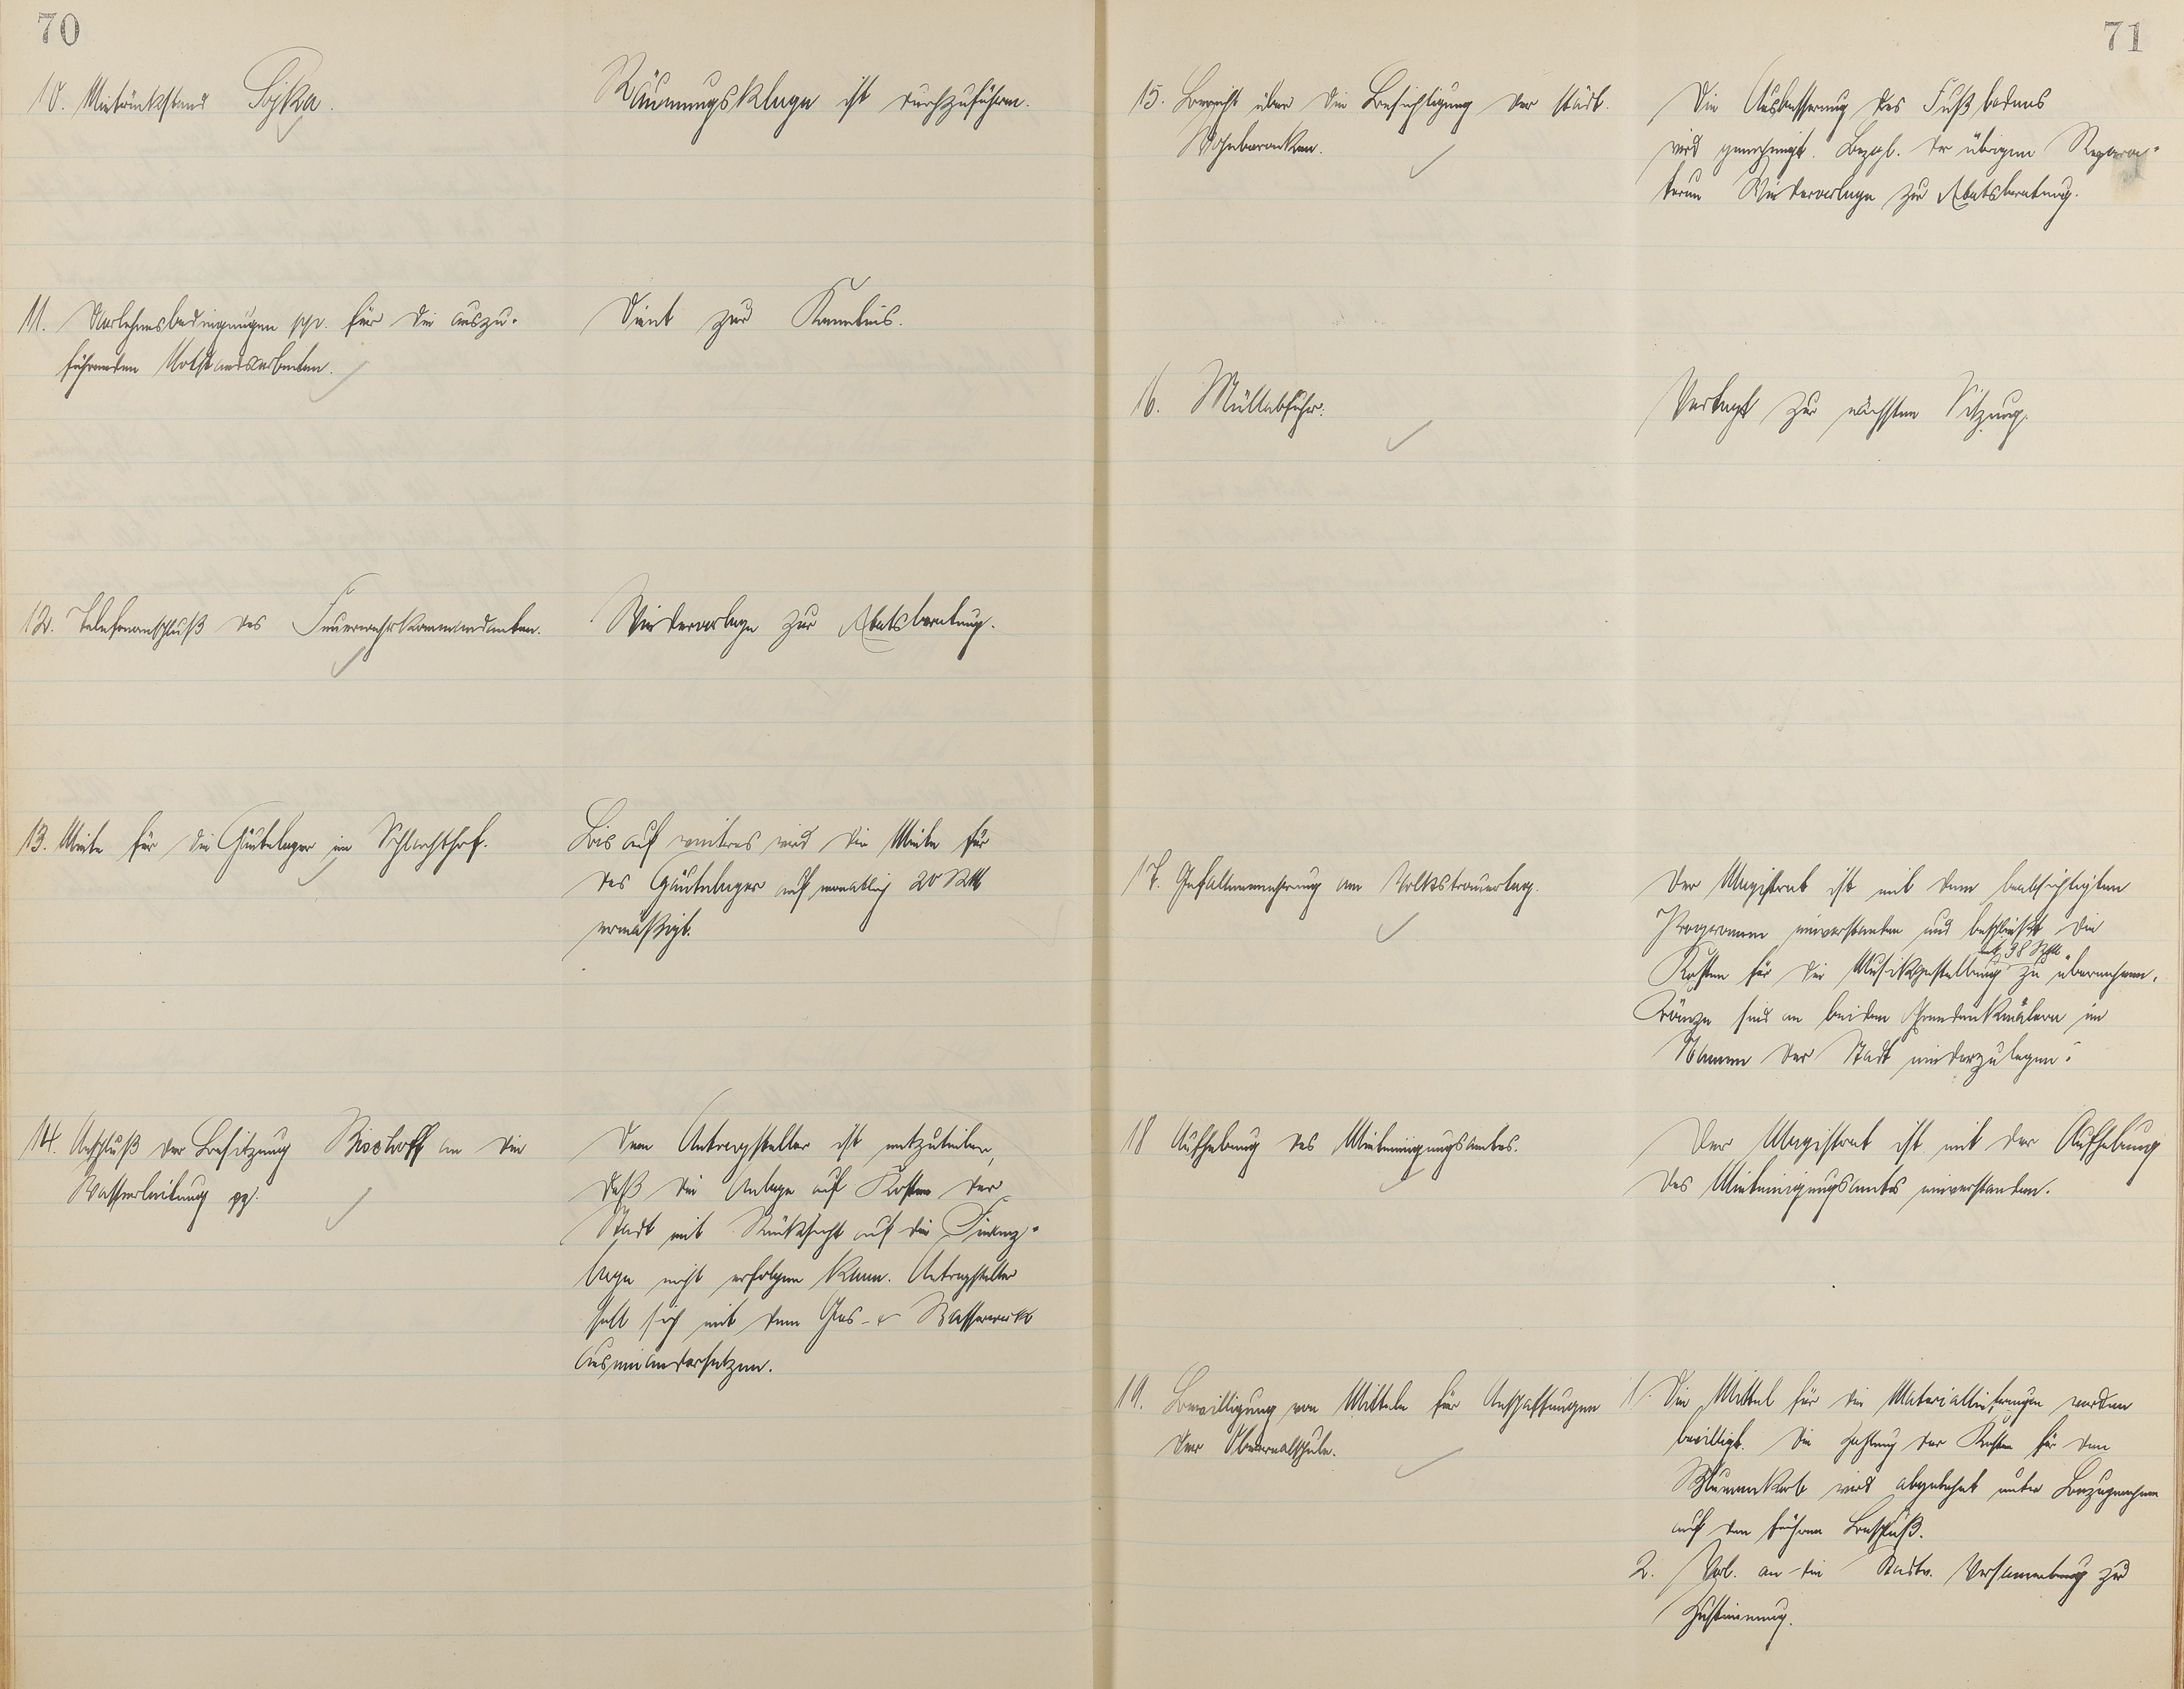 70
10. Mietrückstand Sojka.
Räumungsklage ist durchzuführen.
11. Darlehnsbedingungen pp. für die auszu-
führenden Notstandsarbeiten.
Dient zur Kenntnis.
12. Telefonanschluß des Feuerwehrkommandanten.
Wiedervorlage zur Etatsberatung.
13. Miete für die Häutelager im Schlachthof.
Bis auf weiteres wird die Miete für
das Häutelager auf monatlich 20 RM
ermäßigt.
14. Anschluß der Besitzung Bischoff an die
Wasserleitung pp.
Dem Antragsteller ist mitzuteilen,
daß die Anlage auf Kosten der
Stadt mit Rücksicht auf die Finanz-
lage nicht erfolgen kann. Antragsteller
soll sich mit dem Gas- u Wasserwerk
auseinandersetzen.
71
15. Bericht über die Besichtigung der städt.
Wohnbaracken.
Die Ausbesserung des Fußbodens
wird genehmigt. Bezgl. der übrigen Repara-
turen Wiedervorlage zur Etatsberatung.
16. Müllabfuhr.
Vertagt zur nächsten Sitzung.
17. Gefallenenehrung am Volkstrauertag.
Der Magistrat ist mit dem beabsichtigten
Programm einverstanden und beschließt die
mit 38 RM
Kosten für die Musikgestellung zu übernehmen.
Kränze sind an beiden Ehrendenkmälern im
Namen der Stadt niederzulegen.
18 Aufhebung des Mieteinigungsamtes.
Der Magistrat ist mit der Aufhebung
des Mieteinigungsamtes einverstanden.
19. Bewilligung von Mitteln für Anschaffungen
der Oberrealschule.
1. Die Mittel für die Materiallieferungen werden
bewilligt. Die Zahlung der Kosten für den
Blumenkorb wird abgelehnt unter Bezugnahme
auf den früheren Beschluß.
2. Vorl. an die Stadtv. Versammlung zur
Zustimmung.